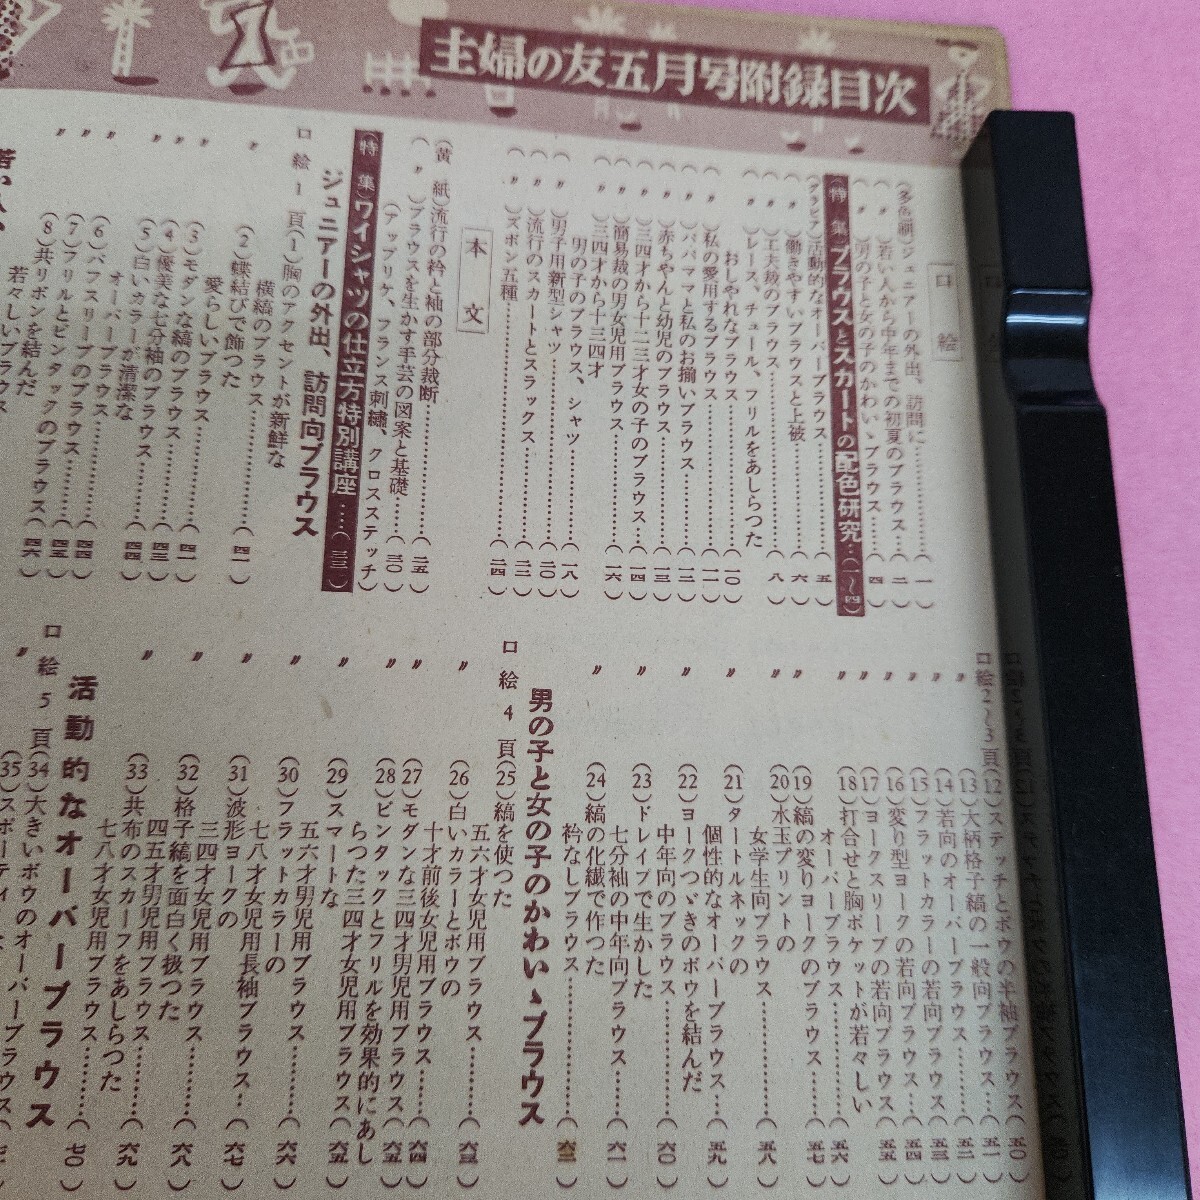 主婦の友五月号附録目次
口絵
(多色刷)ジュニアーの外出、訪問に…………(一)
(〃)若い人から中年までの初夏のブラウス…(二)
(〃)男の子と女の子のかわいゝブラウス……(四)
(特集)ブラウスとスカートの配色研究…(一〜四)
(グラビア)活動的なオーバーブラウス…………(五)
(〃)働きやすいブラウスと上被…………(六)
(〃)工夫裁のブラウス…………(八)
(〃)レース、チュール、フリルをあしらつた
おしやれなブラウス…………(一〇)
(〃)私の愛用するブラウス…………(一一)
(〃)パパママと私のお揃いブラウス…………(一二)
(〃)赤ちやんと幼児のブラウス…………(一三)
(〃)三四才から十二三才女の子のブラウス…(一四)
(〃)簡易裁の男女児用ブラウス…………(一六)
(〃)三四才から十三四才
男の子のブラウス、シャツ…………(一八)
(〃)男子用新型シャツ…………(二〇)
(〃)流行のスカートとスラックス…………(二二)
(〃)ズボン五種…………(二四)
本文
(黄紙)流行の衿と袖の部分裁断…………(二五)
(〃)ブラウスを生かす手芸の図案と基礎……(三〇)
(アップリケ、フランス刺繡、クロスステッチ)
(特集)ワイシャツの仕立方特別講座……(三三)
ジュニアーの外出、訪問向ブラウス
口絵1頁(1)胸のアクセントが新鮮な
横縞のブラウス…………(四一)
〃(2)蝶結びで飾つた
愛らしいブラウス
〃(3)モダンな縞のブラウス…………(四二)
〃(4)優美な七分袖のブラウス…………(四三)
〃(5)白いカラーが清潔な
オーバーブラウス…………(四四)
〃(6)パフスリーブのブラウス…………(四四)
〃(7)フリルとピンタックのブラウス……(四五)
〃(8)共リボンを結んだ
若々しいブラウス…………(四六)
口絵2〜3頁(12)ステッチとボウの半袖ブラウス(五〇)
〃(13)大柄格子縞の一般向ブラウス…(五一)
〃(14)若向のオーバーブラウス…………(五二)
〃(15)フラットカラーの若向ブラウス…(五三)
〃(16)変り型ヨークの若向ブラウス……(五四)
〃(17)ヨークスリーブの若向ブラウス(五五)
〃(18)打合せと胸ポケットが若々しい
オーバーブラウス…………(五六)
〃(19)縞の変りヨークのブラウス………(五七)
〃(20)水玉プリントの
女学生向ブラウス…………(五八)
〃(21)タートルネックの
個性的なオーバーブラウス…(五九)
〃(22)ヨークつゞきのボウを結んだ
中年向のブラウス…………(六〇)
〃(23)ドレイプで生かした
七分袖の中年向ブラウス……(六一)
〃(24)縞の化繊で作つた
衿なしブラウス…………(六二)
男の子と女の子のかわいゝブラウス
口絵4頁(25)縞を使つた
五六才女児用ブラウス………(六三)
〃(26)白いカラーとボウの
十才前後女児用ブラウス……(六四)
〃(27)モダンな三四才男児用ブラウス(六五)
〃(28)ピンタックとフリルを効果的にあし
らつた三四才女児用ブラウス(六五)
〃(29)スマートな
五六才男児用ブラウス………(六六)
〃(30)フラットカラーの
七八才女児用ブラウス
〃(31)波形ヨークの
三四才女児用長袖ブラウス…(六七)
〃(32)格子縞を面白く扱つた
四五才男児用ブラウス………(六八)
〃(33)共布のスカーフをあしらつた
七八才女児用ブラウス………(六九)
活動的なオーバーブラウス
口絵5頁(34)大きいボウのオーバーブラウス(七〇)
〃(35)スポーティ